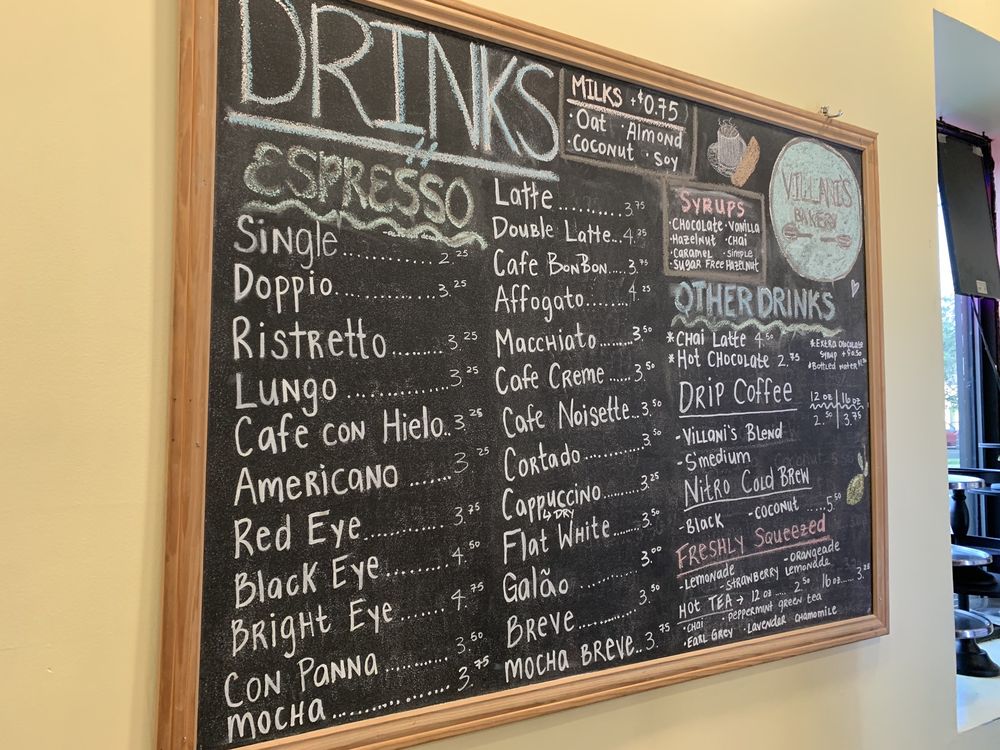 DRINKS
ESPRESSO
Single.............. 2.25
Doppio............ 3.25
Ristretto......... 3.25
Lungo ........... 3.25
Cafe con Hielo.. 3.25
Americano ....... 3.25
Red Eye.......... 3.75
Black Eye........ 4.50
Bright Eye ...... 4.75
Con Panna .......... 3.50
Mocha ................ 3.75
Latte.......... 3.75
Double Latte... 4.25
Cafe BonBon..... 3.75
Affogato........ 4.25
Macchiato....... 3.50
Cafe Creme ...... 3.50
Cafe Noisette... 3.50
Cortado ........ 3.50
Cappuccino......... 3.25
↳ DRY
Flat White....... 3.50
Galão ............ 3.00
Breve............ 3.50
Mocha Breve.. 3.75
MILKS +$0.75
·Oat ·Almond
·Coconut ·Soy
SYRUPS
·Chocolate ·Vanilla
·Hazelnut ·Chai
·Caramel ·Simple
·Sugar Free Hazelnut
VILLANI'S
BAKERY
OTHER DRINKS
*Chai Latte 4.50
*Hot Chocolate 2.75
*Extra Chocolate
Syrup +$0.50
*Bottled Water
Drip Coffee
12 oz | 16 oz
2.50 | 3.75
-Villani's Blend
-Smedium
Nitro Cold Brew
-Black -Coconut ..... 5.50
Freshly Squeezed
-Lemonade -Orangeade
-Strawberry Lemonade
Hot Tea → 12 oz .... 2.50 16 oz .... 3.25
·Chai ·Peppermint Green Tea
·Earl Grey ·Lavender Chamomile